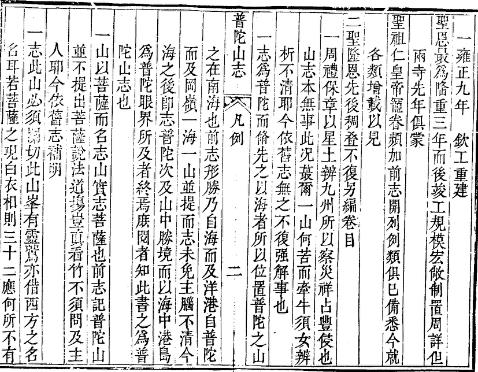 一雍正九年　欽工重建
聖恩最為隆重三年而後竣工規模宏敞制置周詳但
兩寺先年俱蒙
聖祖仁皇帝寵眷頻加前志開列例類俱已備悉今就
各類增載以見
二聖隆恩先後稠疊不復另編卷目
一周禮保章以星土辨九州所以察災祥占豐侵也
山志本無事此況蕞爾一山何苦而牽牛須女辨
析不清耶今依舊志無之不復强解事也
一志為普陀而脩先之以海者所以位置普陀之山
普陀山志
凡例
二
之在南海也前志形勝乃自海而及洋港自普陀
而及岡嶺一海一山並提而志未免主腦不清今
海之後即志普陀次及山中勝境而以海中港島
為普陀眼界所及者終焉庶閱者知此書之為普
陀山志也
一山以菩薩而名志山實志菩薩也前志記普陀山
並不提出菩薩說法道塲豈直看竹不須問及主
人耶今依舊志補明
一志此山必須切此山峯有靈鷲亦借西方之名
名耳若菩薩之現白衣相則三十二應何所不有